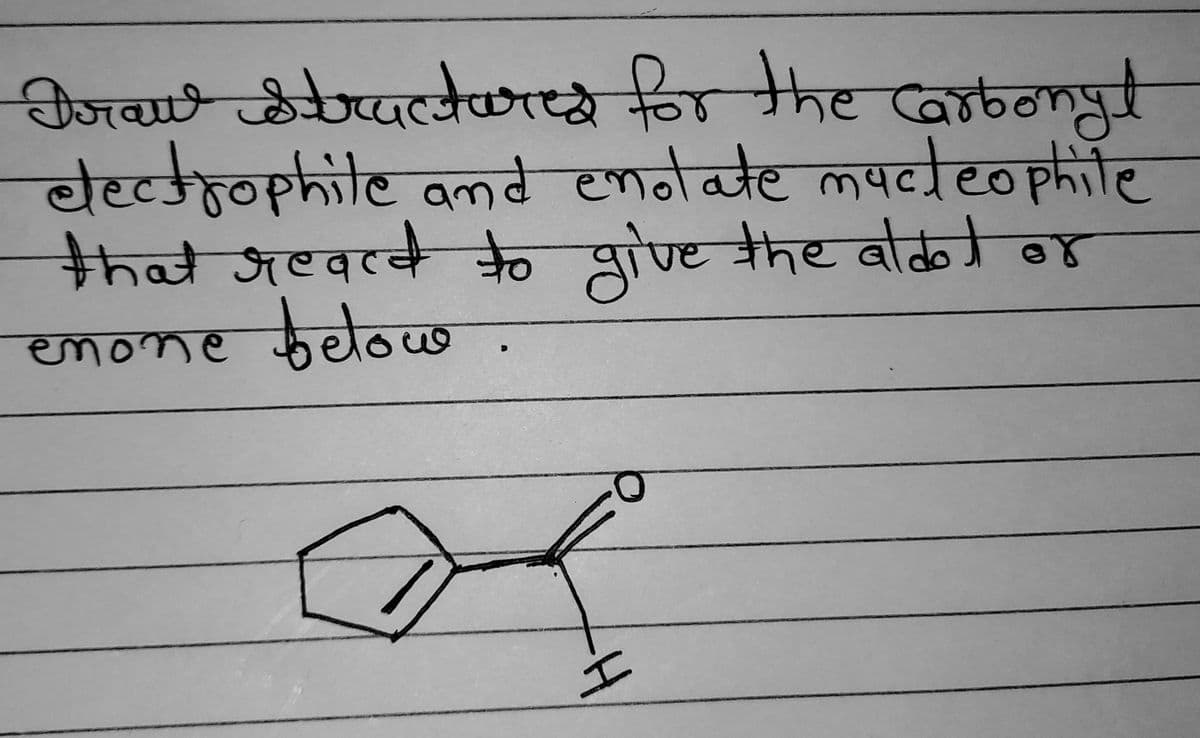 Draw structures for the carbonyl
electrophile and enolate nucleophile
that react to give the aldol or
enone below.
O
H